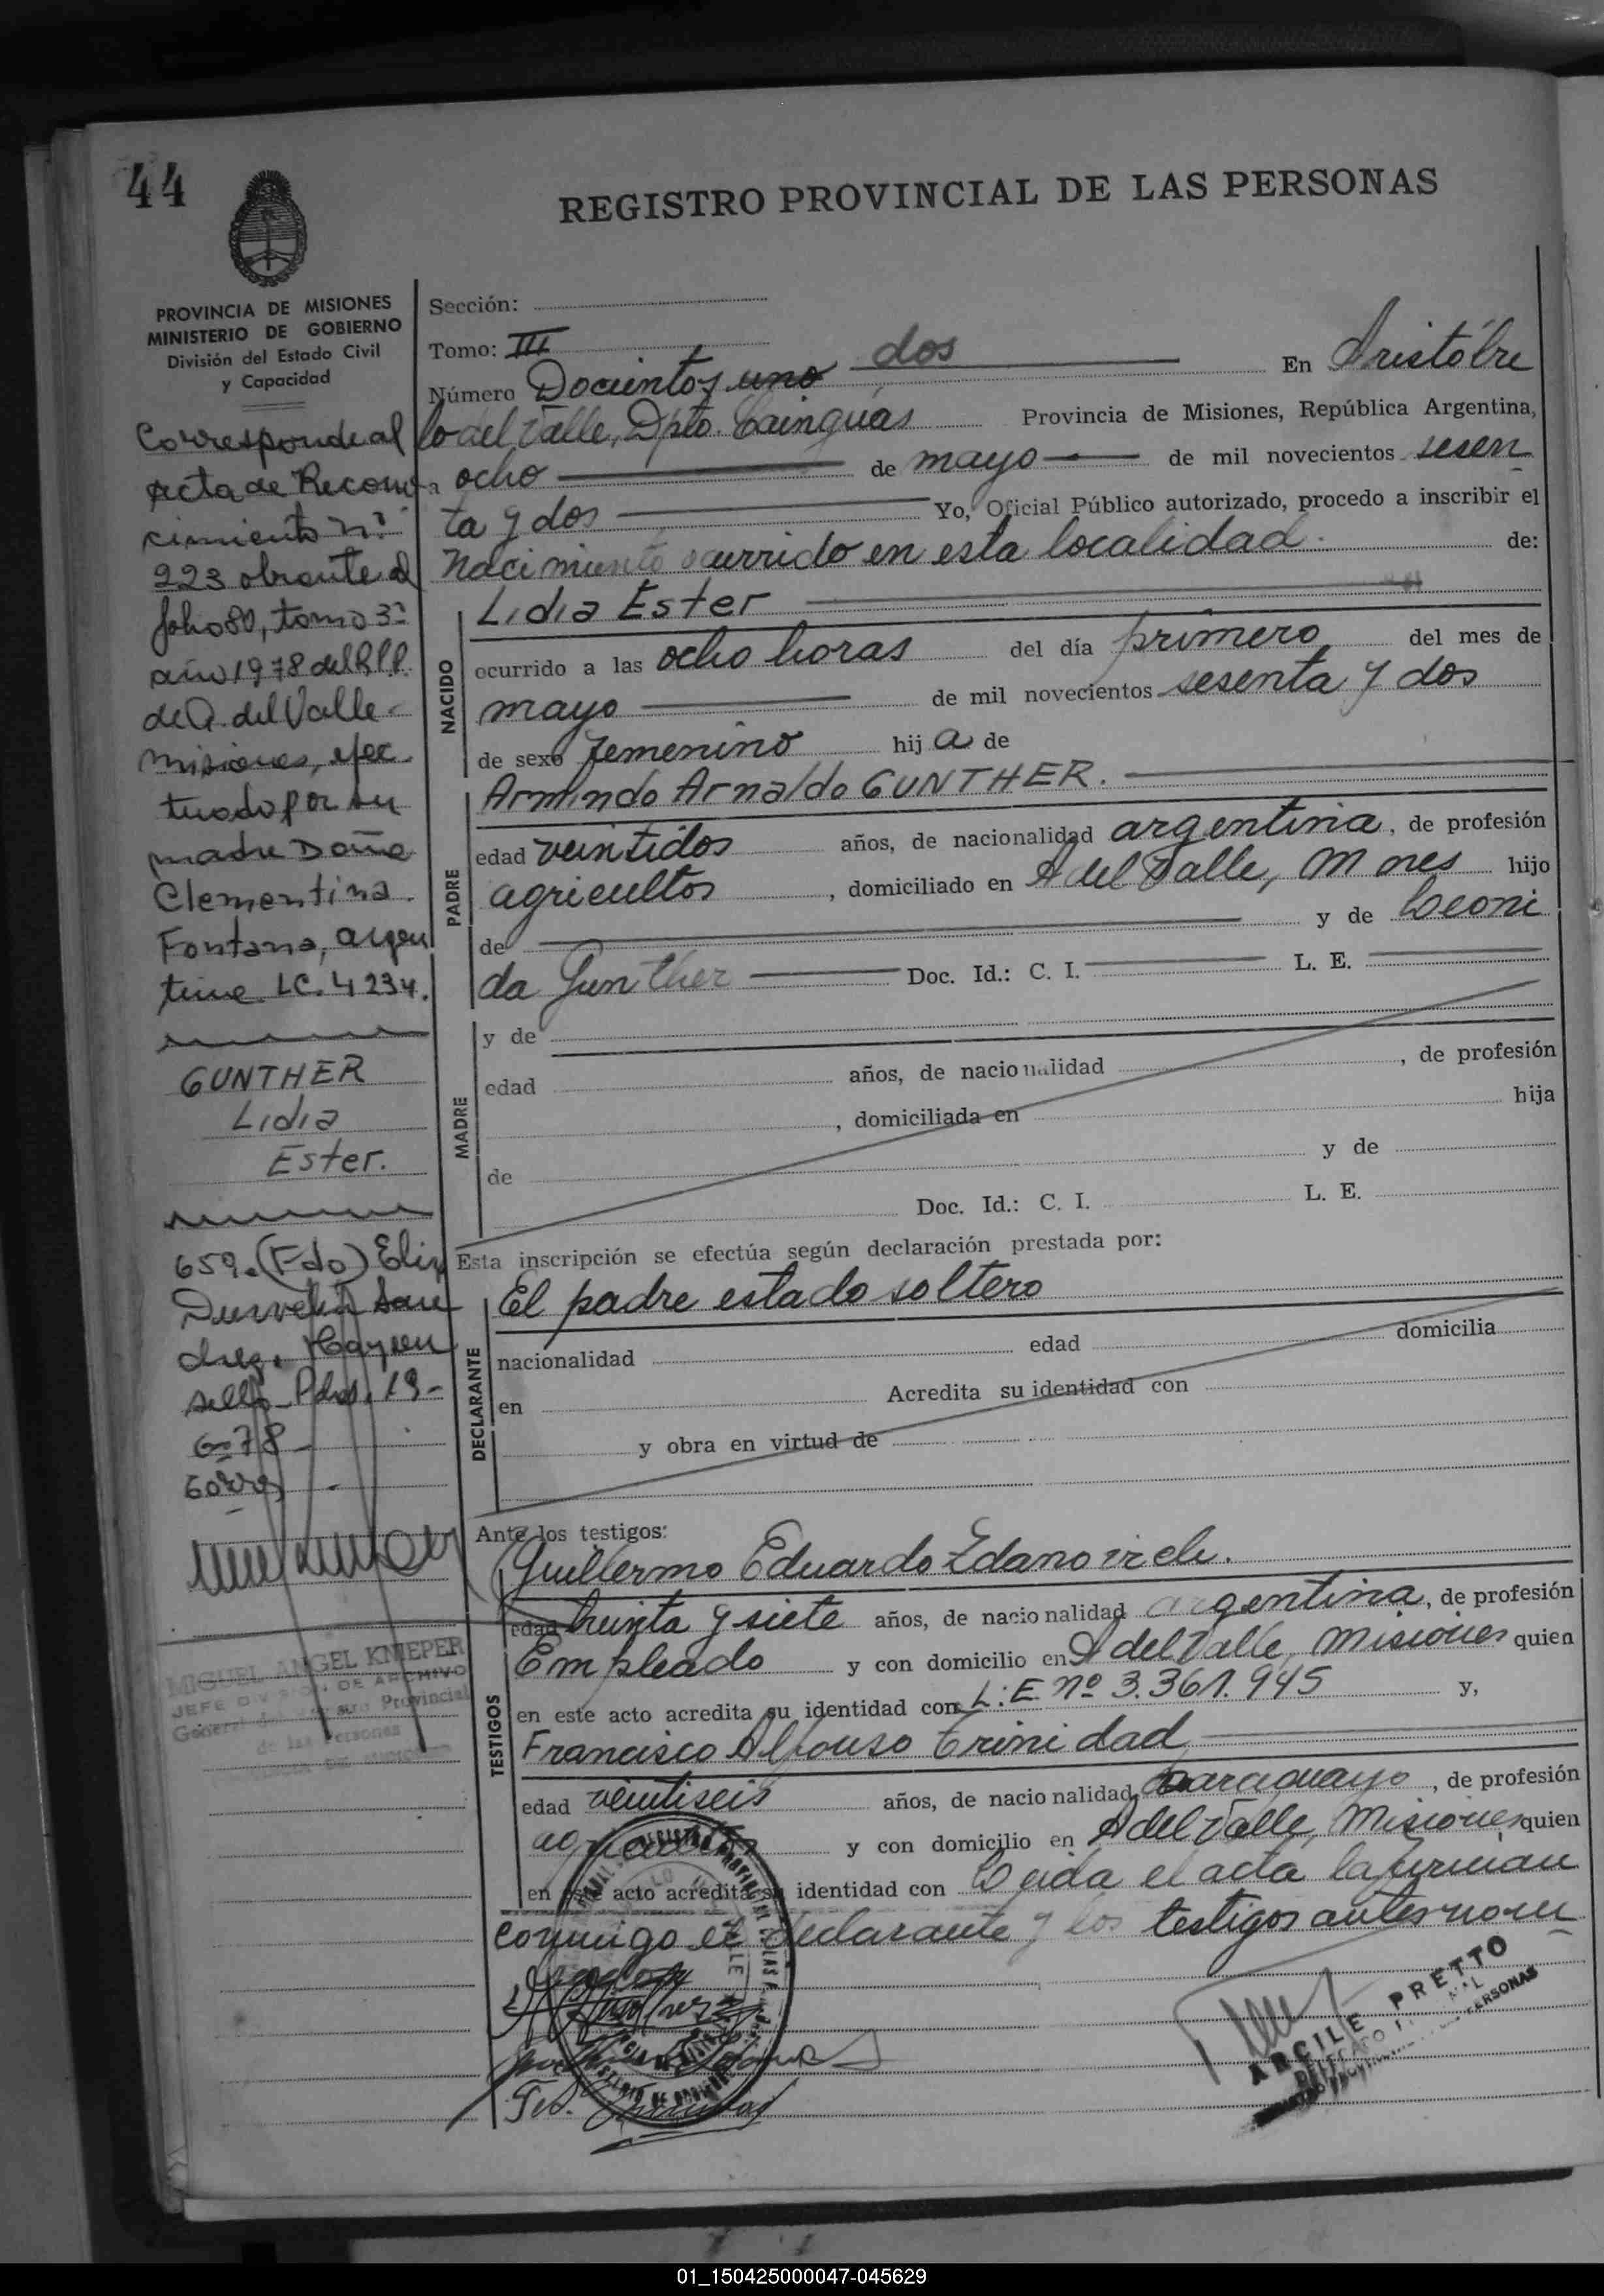 44
REGISTRO PROVINCIAL DE LAS PERSONAS
PROVINCIA DE MISIONES
MINISTERIO DE GOBIERNO
División del Estado Civil
y Capacidad
Corresponde al
Acta de Recono
cimiento nº
223 obrante al
folio 80, tomo 3º
año 1978 del R.P.P.
de A. del Valle-
Misiones, efec
tuado por su
madre Doña
Clementina
Fontana, argen
tina LC. 4 234.
GUNTHER
Lidia
Ester.
659. (Fdo) Elix
sello Pdas. 19-
6-78
Sección:
Tomo: III
Número Docientos uno dos En Aristóbu
lo del Valle, Dpto. Cainguás Provincia de Misiones, República Argentina,
a ocho de mayo de mil novecientos sesen
ta y dos Yo, Oficial Público autorizado, procedo a inscribir el
Nacimiento ocurrido en esta localidad. de:
NACIDO
Lidia Ester
ocurrido a las ocho horas del día primero del mes de
mayo de mil novecientos sesenta y dos
de sexo femenino hij a de
PADRE
Armindo Arnaldo GUNTHER.
edad veintidos años, de nacionalidad argentina, de profesión
agricultor, domiciliado en A del Valle, Mnes hijo
de y de Leoni
da Gunther Doc. Id.: C. I. L. E.
MADRE
y de
edad años, de nacionalidad , de profesión
, domiciliada en hija
de y de
Doc. Id.: C. I. L. E.
Esta inscripción se efectúa según declaración prestada por:
DECLARANTE
El padre estado soltero
nacionalidad edad domicilia
en Acredita su identidad con
y obra en virtud de
Ante los testigos:
TESTIGOS
Guillermo Eduardo
edad treinta y siete años, de nacionalidad argentina, de profesión
Empleado y con domicilio en A del Valle, Misiones quien
en este acto acredita su identidad con L.E. nº 3.361.945 y,
Francisco Alfonso Trinidad
edad veintiseis años, de nacionalidad paraguayo, de profesión
agricultor y con domicilio en A del Valle, Misiones, quien
en este acto acredita su identidad con Leida el acta la firman
conmigo el declarante y los testigos antes nom
MIGUEL ANGEL KNIEPER
JEFE DIVISION DE ARCHIVO
General del Registro Provincial
de las Personas
ARCILE PRETTO
01_150425000047-045629